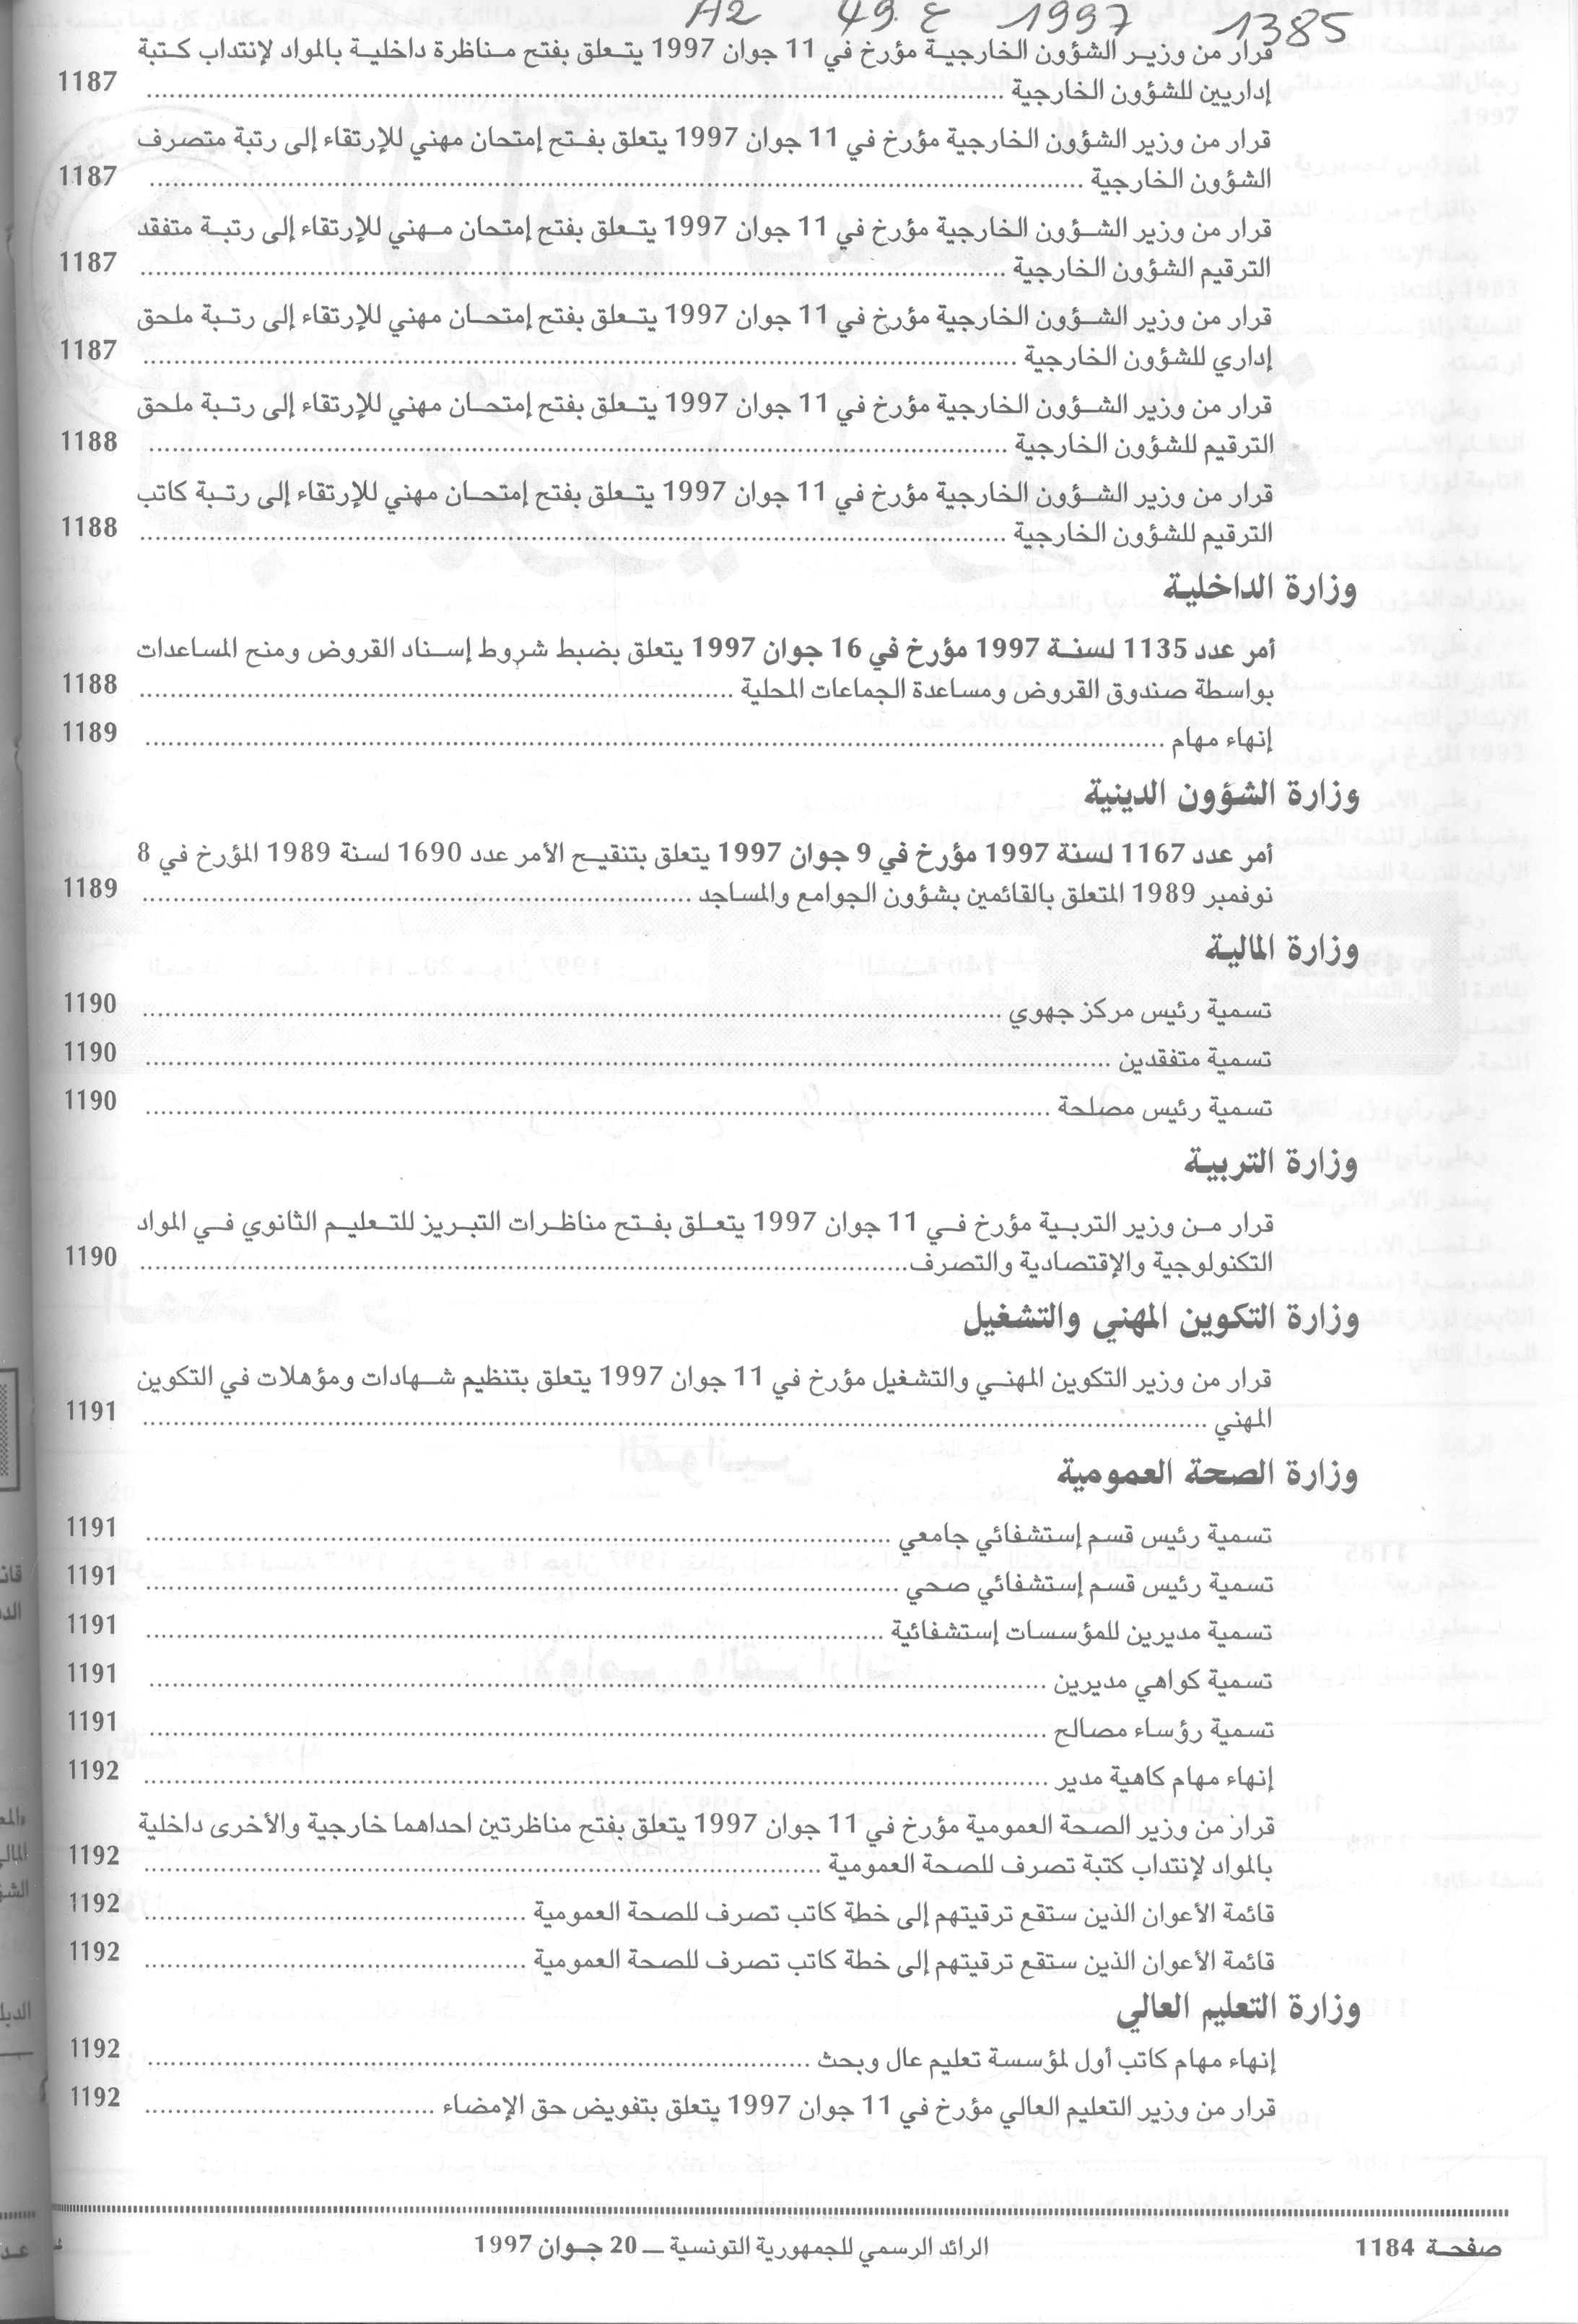 A2 49.ع 1997 1385
قرار من وزير الشؤون الخارجية مؤرخ في 11 جوان 1997 يتعلق بفتح مناظرة داخلية بالمواد لإنتداب كتبة
إداريين للشؤون الخارجية ........ 1187
قرار من وزير الشؤون الخارجية مؤرخ في 11 جوان 1997 يتعلق بفتح إمتحان مهني للإرتقاء إلى رتبة متصرف
الشؤون الخارجية ........ 1187
قرار من وزير الشؤون الخارجية مؤرخ في 11 جوان 1997 يتعلق بفتح إمتحان مهني للإرتقاء إلى رتبة متفقد
الترقيم الشؤون الخارجية ........ 1187
قرار من وزير الشؤون الخارجية مؤرخ في 11 جوان 1997 يتعلق بفتح إمتحان مهني للإرتقاء إلى رتبة ملحق
إداري للشؤون الخارجية ........ 1187
قرار من وزير الشؤون الخارجية مؤرخ في 11 جوان 1997 يتعلق بفتح إمتحان مهني للإرتقاء إلى رتبة ملحق
الترقيم للشؤون الخارجية ........ 1188
قرار من وزير الشؤون الخارجية مؤرخ في 11 جوان 1997 يتعلق بفتح إمتحان مهني للإرتقاء إلى رتبة كاتب
الترقيم للشؤون الخارجية ........ 1188
وزارة الداخلية
أمر عدد 1135 لسنة 1997 مؤرخ في 16 جوان 1997 يتعلق بضبط شروط إسناد القروض ومنح المساعدات
بواسطة صندوق القروض ومساعدة الجماعات المحلية ........ 1188
إنهاء مهام ........ 1189
وزارة الشؤون الدينية
أمر عدد 1167 لسنة 1997 مؤرخ في 9 جوان 1997 يتعلق بتنقيح الأمر عدد 1690 لسنة 1989 المؤرخ في 8
نوفمبر 1989 المتعلق بالقائمين بشؤون الجوامع والمساجد ........ 1189
وزارة المالية
تسمية رئيس مركز جهوي ........ 1190
تسمية متفقدين ........ 1190
تسمية رئيس مصلحة ........ 1190
وزارة التربية
قرار من وزير التربية مؤرخ في 11 جوان 1997 يتعلق بفتح مناظرات التبريز للتعليم الثانوي في المواد
التكنولوجية والإقتصادية والتصرف........ 1190
وزارة التكوين المهني والتشغيل
قرار من وزير التكوين المهني والتشغيل مؤرخ في 11 جوان 1997 يتعلق بتنظيم شهادات ومؤهلات في التكوين
المهني ........ 1191
وزارة الصحة العمومية
تسمية رئيس قسم إستشفائي جامعي ........ 1191
تسمية رئيس قسم إستشفائي صحي ........ 1191
تسمية مديرين للمؤسسات إستشفائية ........ 1191
تسمية كواهي مديرين ........ 1191
تسمية رؤساء مصالح ........ 1191
إنهاء مهام كاهية مدير ........ 1192
قرار من وزير الصحة العمومية مؤرخ في 11 جوان 1997 يتعلق بفتح مناظرتين احداهما خارجية والأخرى داخلية
بالمواد لإنتداب كتبة تصرف للصحة العمومية ........ 1192
قائمة الأعوان الذين ستقع ترقيتهم إلى خطة كاتب تصرف للصحة العمومية ........ 1192
قائمة الأعوان الذين ستقع ترقيتهم إلى خطة كاتب تصرف للصحة العمومية ........ 1192
وزارة التعليم العالي
إنهاء مهام كاتب أول لمؤسسة تعليم عال وبحث ........ 1192
قرار من وزير التعليم العالي مؤرخ في 11 جوان 1997 يتعلق بتفويض حق الإمضاء ........ 1192
صفحة 1184 الرائد الرسمي للجمهورية التونسية ـ 20 جوان 1997